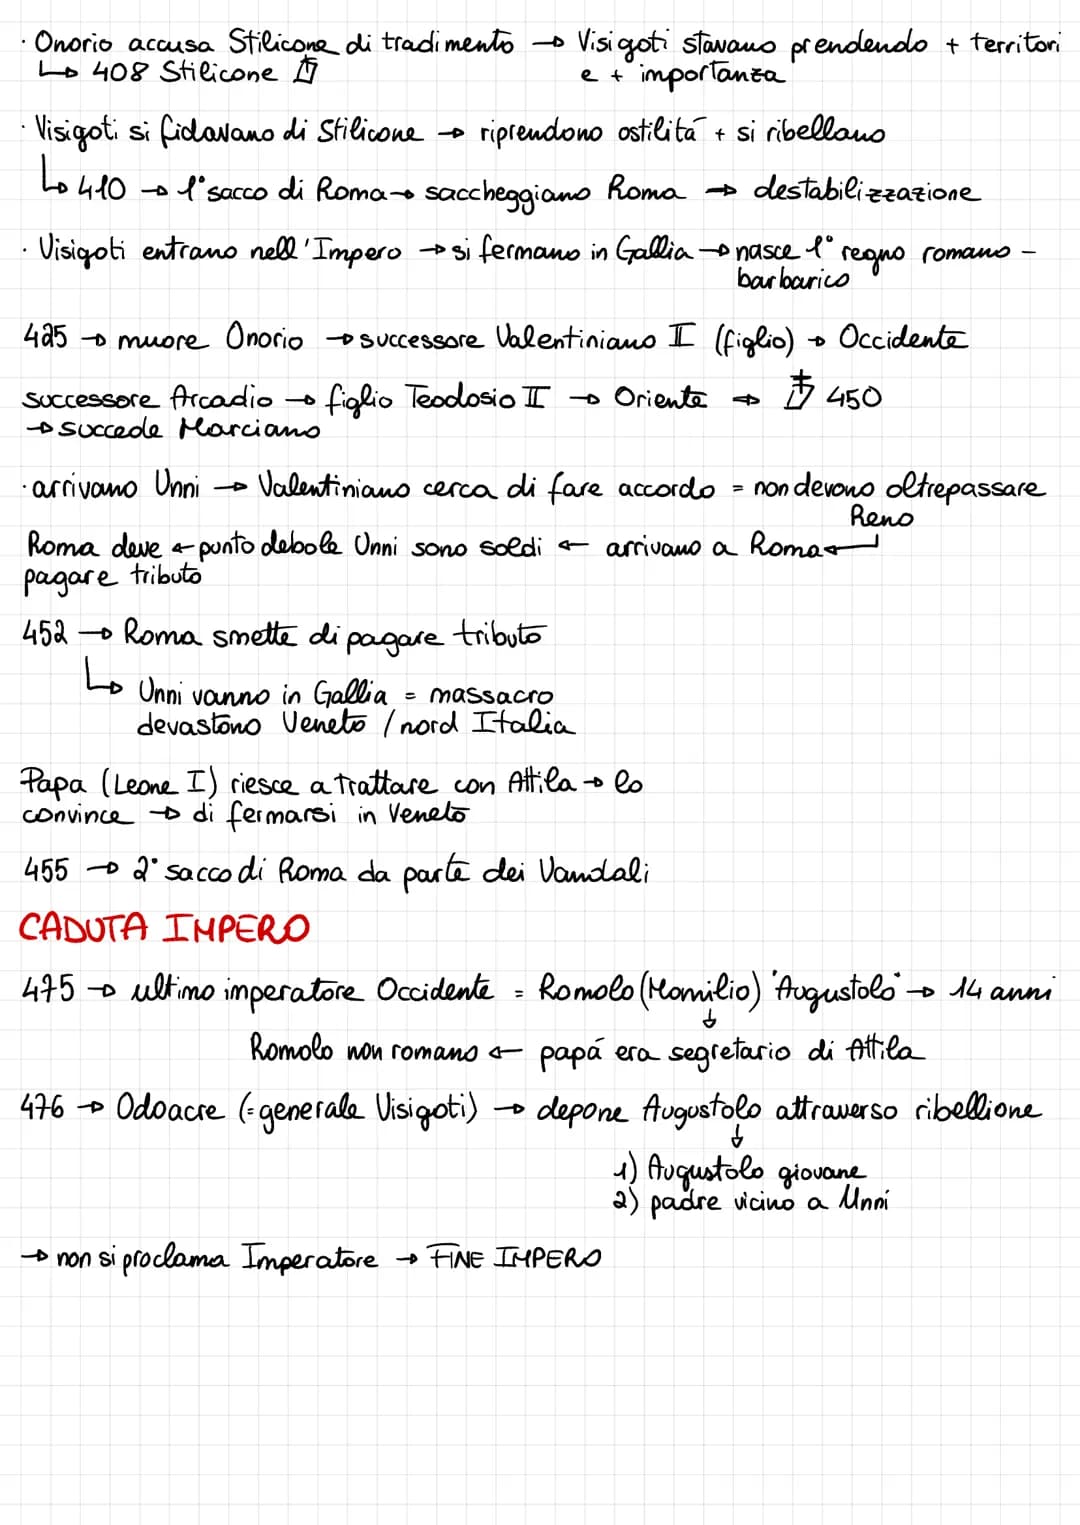 · Onorio accusa Stilicone di tradimento → Visigoti stavano prendendo + territori
↳ 408 Stilicone ✝ e + importanza
· Visigoti si fidavano di Stilicone → riprendono ostilitá + si ribellano
↳ 410 → 1° sacco di Roma → saccheggiano Roma → destabilizzazione
· Visigoti entrano nell'Impero → si fermano in Gallia → nasce 1° regno romano -
barbarico
425 → muore Onorio → successore Valentiniano II (figlio) → Occidente
successore Arcadio → figlio Teodosio II → Oriente → ✝ 450
→ succede Marciano
· arrivano Unni → Valentiniano cerca di fare accordo = non devono oltrepassare
Reno
Roma deve ← punto debole Unni sono soldi ← arrivano a Roma ←
pagare tributo
452 → Roma smette di pagare tributo
↳ Unni vanno in Gallia = massacro
devastono Veneto / nord Italia
Papa (Leone I) riesce a trattare con Attila → lo
convince → di fermarsi in Veneto
455 → 2° sacco di Roma da parte dei Vandali
CADUTA IMPERO
475 → ultimo imperatore Occidente = Romolo (Momilio) "Augustolo" → 14 anni
↓
Romolo non romano ← papá era segretario di Attila
476 → Odoacre (= generale Visigoti) → depone Augustolo attraverso ribellione
↓
1) Augustolo giovane
2) padre vicino a Unni
→ non si proclama Imperatore → FINE IMPERO